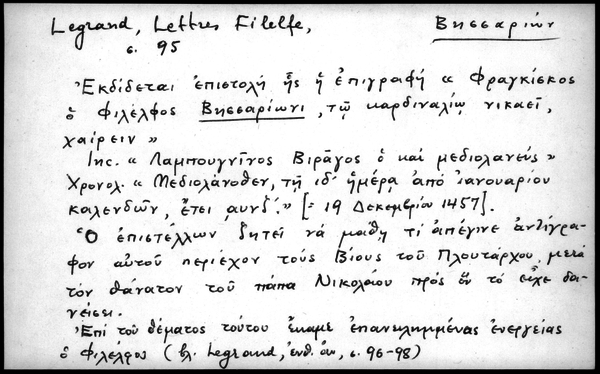 Legrand, Lettres Filelfe, Βησσαρίων
σ. 95
Ἐκδίδεται ἐπιστολή ἧς ἡ ἐπιγραφή « Φραγκίσκος
ὁ Φιλέλφος Βησσαρίωνι, τῷ καρδιναλίῳ νικαεῖ,
χαίρειν »
Inc. « Λαμπουγνῖνος Βιράγος ὁ καί μεδιολανεύς »
Χρονολ. « Μεδιολάνοθεν, τῇ ιδ' ἡμέρᾳ ἀπό ἰανουαρίου
καλενδῶν, ἔτει αυνζ'. » [= 19 Δεκεμβρίου 1457].
Ὁ ἐπιστέλλων ζητεῖ νά μάθῃ τί ἀπέγινε ἀντίγρα-
φον αὐτοῦ περιέχον τούς Βίους τοῦ Πλουτάρχου μετά
τόν θάνατον τοῦ πάπα Νικολάου πρός ὅν τό εἶχε δα-
νείσει.
Ἐπί τοῦ θέματος τούτου ἔκαμε ἐπανειλημμένας ἐνεργείας
ὁ Φιλέλφου (βλ. Legrand, ἔνθ. ἀν., σ. 96-98)